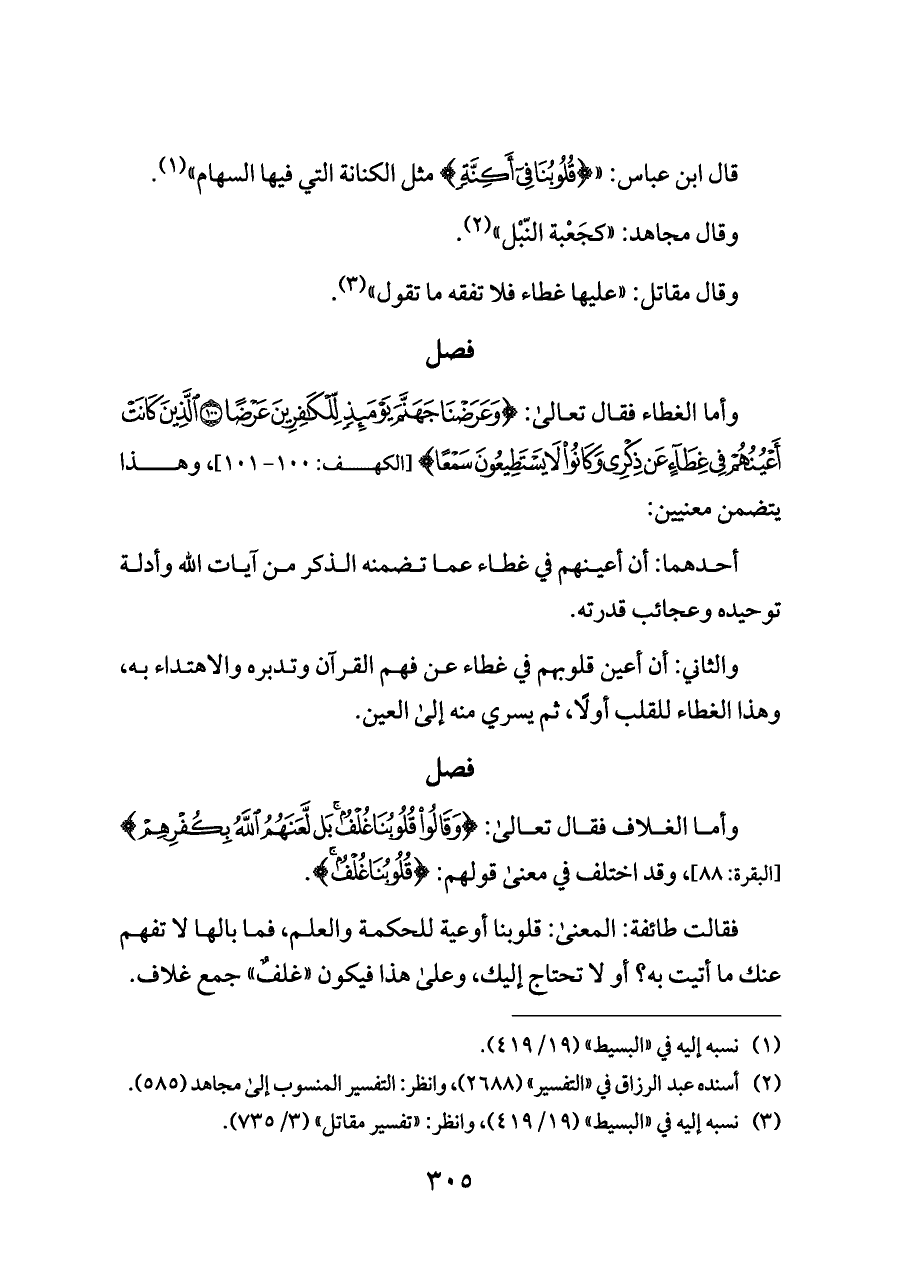 قال ابن عباس: «﴿قُلُوبُنَا فِىٓ أَكِنَّةٍ﴾ مثل الكنانة التي فيها السهام»(١).
وقال مجاهد: «كجَعْبة النّبْل»(٢).
وقال مقاتل: «عليها غطاء فلا تفقه ما تقول»(٣).
فصل
وأما الغطاء فقال تعالىٰ: ﴿وَعَرَضْنَا جَهَنَّمَ يَوْمَئِذٍ لِّلْكَٰفِرِينَ عَرْضًا ۝١٠٠ ٱلَّذِينَ كَانَتْ
أَعْيُنُهُمْ فِى غِطَآءٍ عَن ذِكْرِى وَكَانُوا۟ لَا يَسْتَطِيعُونَ سَمْعًا﴾ [الكهف: ١٠٠-١٠١]، وهذا
يتضمن معنيين:
أحدهما: أن أعينهم في غطاء عما تضمنه الذكر من آيات الله وأدلة
توحيده وعجائب قدرته.
والثاني: أن أعين قلوبهم في غطاء عن فهم القرآن وتدبره والاهتداء به،
وهذا الغطاء للقلب أولًا، ثم يسري منه إلىٰ العين.
فصل
وأما الغلاف فقال تعالىٰ: ﴿وَقَالُوا۟ قُلُوبُنَا غُلْفٌۢ ۚ بَل لَّعَنَهُمُ ٱللَّهُ بِكُفْرِهِمْ﴾
[البقرة: ٨٨]، وقد اختلف في معنىٰ قولهم: ﴿قُلُوبُنَا غُلْفٌۢ ۚ﴾.
فقالت طائفة: المعنىٰ: قلوبنا أوعية للحكمة والعلم، فما بالها لا تفهم
عنك ما أتيت به؟ أو لا تحتاج إليك، وعلىٰ هذا فيكون «غلفٌ» جمع غلاف.
(١) نسبه إليه في «البسيط» (١٩/ ٤١٩).
(٢) أسنده عبد الرزاق في «التفسير» (٢٦٨٨)، وانظر: التفسير المنسوب إلىٰ مجاهد (٥٨٥).
(٣) نسبه إليه في «البسيط» (١٩/ ٤١٩)، وانظر: «تفسير مقاتل» (٣/ ٧٣٥).
٣٠٥